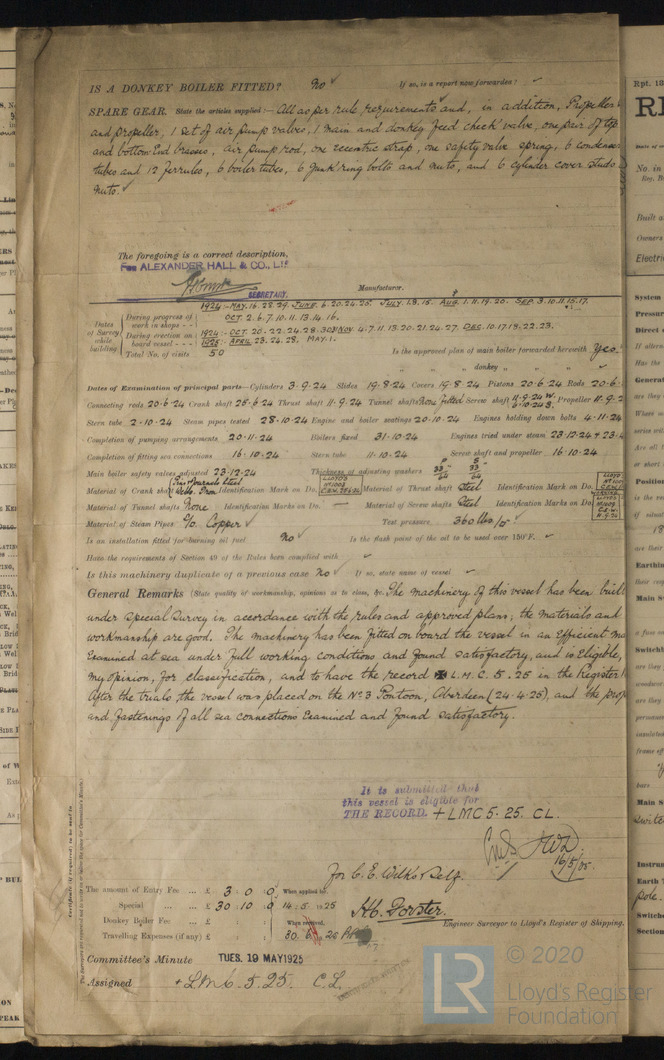 IS A DONKEY BOILER FITTED? No ✓ If so, is a report now forwarded? ✓
SPARE GEAR. State the articles supplied:— All as per rule requirements and, in addition, Propeller
and propeller, 1 set of air pump valves, 1 main and donkey feed check valve, one pair of top
and bottom End brasses, air pump rod, one eccentric strap, one safety valve spring, 6 condenser
tubes and 12 ferrules, 6 boiler tubes, 6 junk ring bolts and nuts, and 6 cylinder cover studs
nuts.
The foregoing is a correct description,
FOR ALEXANDER HALL & CO., LTD
SECRETARY. Manufacturer.
Dates of Survey while building
During progress of work in shops - - 1924:- MAY. 16. 22. 29. JUNE. 6. 20. 24. 25. JULY. 1. 8. 15. AUG. 1. 11. 19. 20. SEP. 3. 10. 11. 15. 17.
OCT. 2. 6. 7. 10. 11. 13. 14. 16.
During erection on board vessel - - - 1924:- OCT. 20. 22. 24. 28. 30. 31 NOV. 4. 7. 11. 13. 20. 21. 24. 27. DEC. 10. 17. 18. 22. 23.
1925:- APRIL 23. 24. 28. MAY. 1.
Total No. of visits 50 Is the approved plan of main boiler forwarded herewith Yes.
" " " donkey " " " ✓
Dates of Examination of principal parts—Cylinders 3.9.24 Slides 19.8.24 Covers 19.8.24 Pistons 20.6.24 Rods 20.6.
Connecting rods 20.6.24 Crank shaft 25.6.24 Thrust shaft 11.9.24 Tunnel shafts None fitted Screw shaft 11.9.24 W. Propeller 11.9.2
Stern tube 2.10.24 Steam pipes tested 28.10.24 Engine and boiler seatings 20.10.24 Engines holding down bolts 4.11.24
Completion of pumping arrangements 20.11.24 Boilers fixed 31.10.24 Engines tried under steam 23.12.24 & 23.4
Completion of fitting sea connections 16.10.24 Stern tube 11.10.24 Screw shaft and propeller 16.10.24
Main boiler safety valves adjusted 23.12.24 Thickness of adjusting washers P 33/64 S 33/64
Material of Crank shaft Pins & Journals Steel Webs. Iron Identification Mark on Do. Material of Thrust shaft Steel Identification Mark on Do.
Material of Tunnel shafts None Identification Marks on Do. — Material of Screw shafts Steel Identification Marks on Do.
Material of Steam Pipes S/D Copper ✓ Test pressure 360 lbs/□" ✓
Is an installation fitted for burning oil fuel No ✓ Is the flash point of the oil to be used over 150°F. ✓
Have the requirements of Section 49 of the Rules been complied with ✓
Is this machinery duplicate of a previous case No ✓ If so, state name of vessel ✓
General Remarks (State quality of workmanship, opinions as to class, &c. The machinery of this vessel has been built
under Special Survey in accordance with the rules and approved plans; the materials and
workmanship are good. The machinery has been fitted on board the vessel in an Efficient ma
Examined at sea under full working conditions and found satisfactory, and is Eligible,
my opinion, for classification, and to have the record ✠ L.M.C. 5.25 in the Register
After the trials, the vessel was placed on the No 3 Pontoon, Aberdeen (24.4.25), and the prop
and fastenings of all sea connections Examined and found satisfactory.
It is submitted that
this vessel is eligible for
THE RECORD. + LMC 5.25. CL.
16/5/25.
for C. E. Wilks & Self.
The amount of Entry Fee ... £ 3 : 0 : 0 When applied for,
Special ... ... £ 30 : 10 : 0 14.5.1925
Donkey Boiler Fee ... £ When received,
Travelling Expenses (if any) £ 30.
H.C. Forster.
Engineer Surveyor to Lloyd's Register of Shipping.
Committee's Minute TUES. 19 MAY 1925
Assigned + LMC 5.25 C.L.
© 2020
LR
Lloyd's Register
Foundation